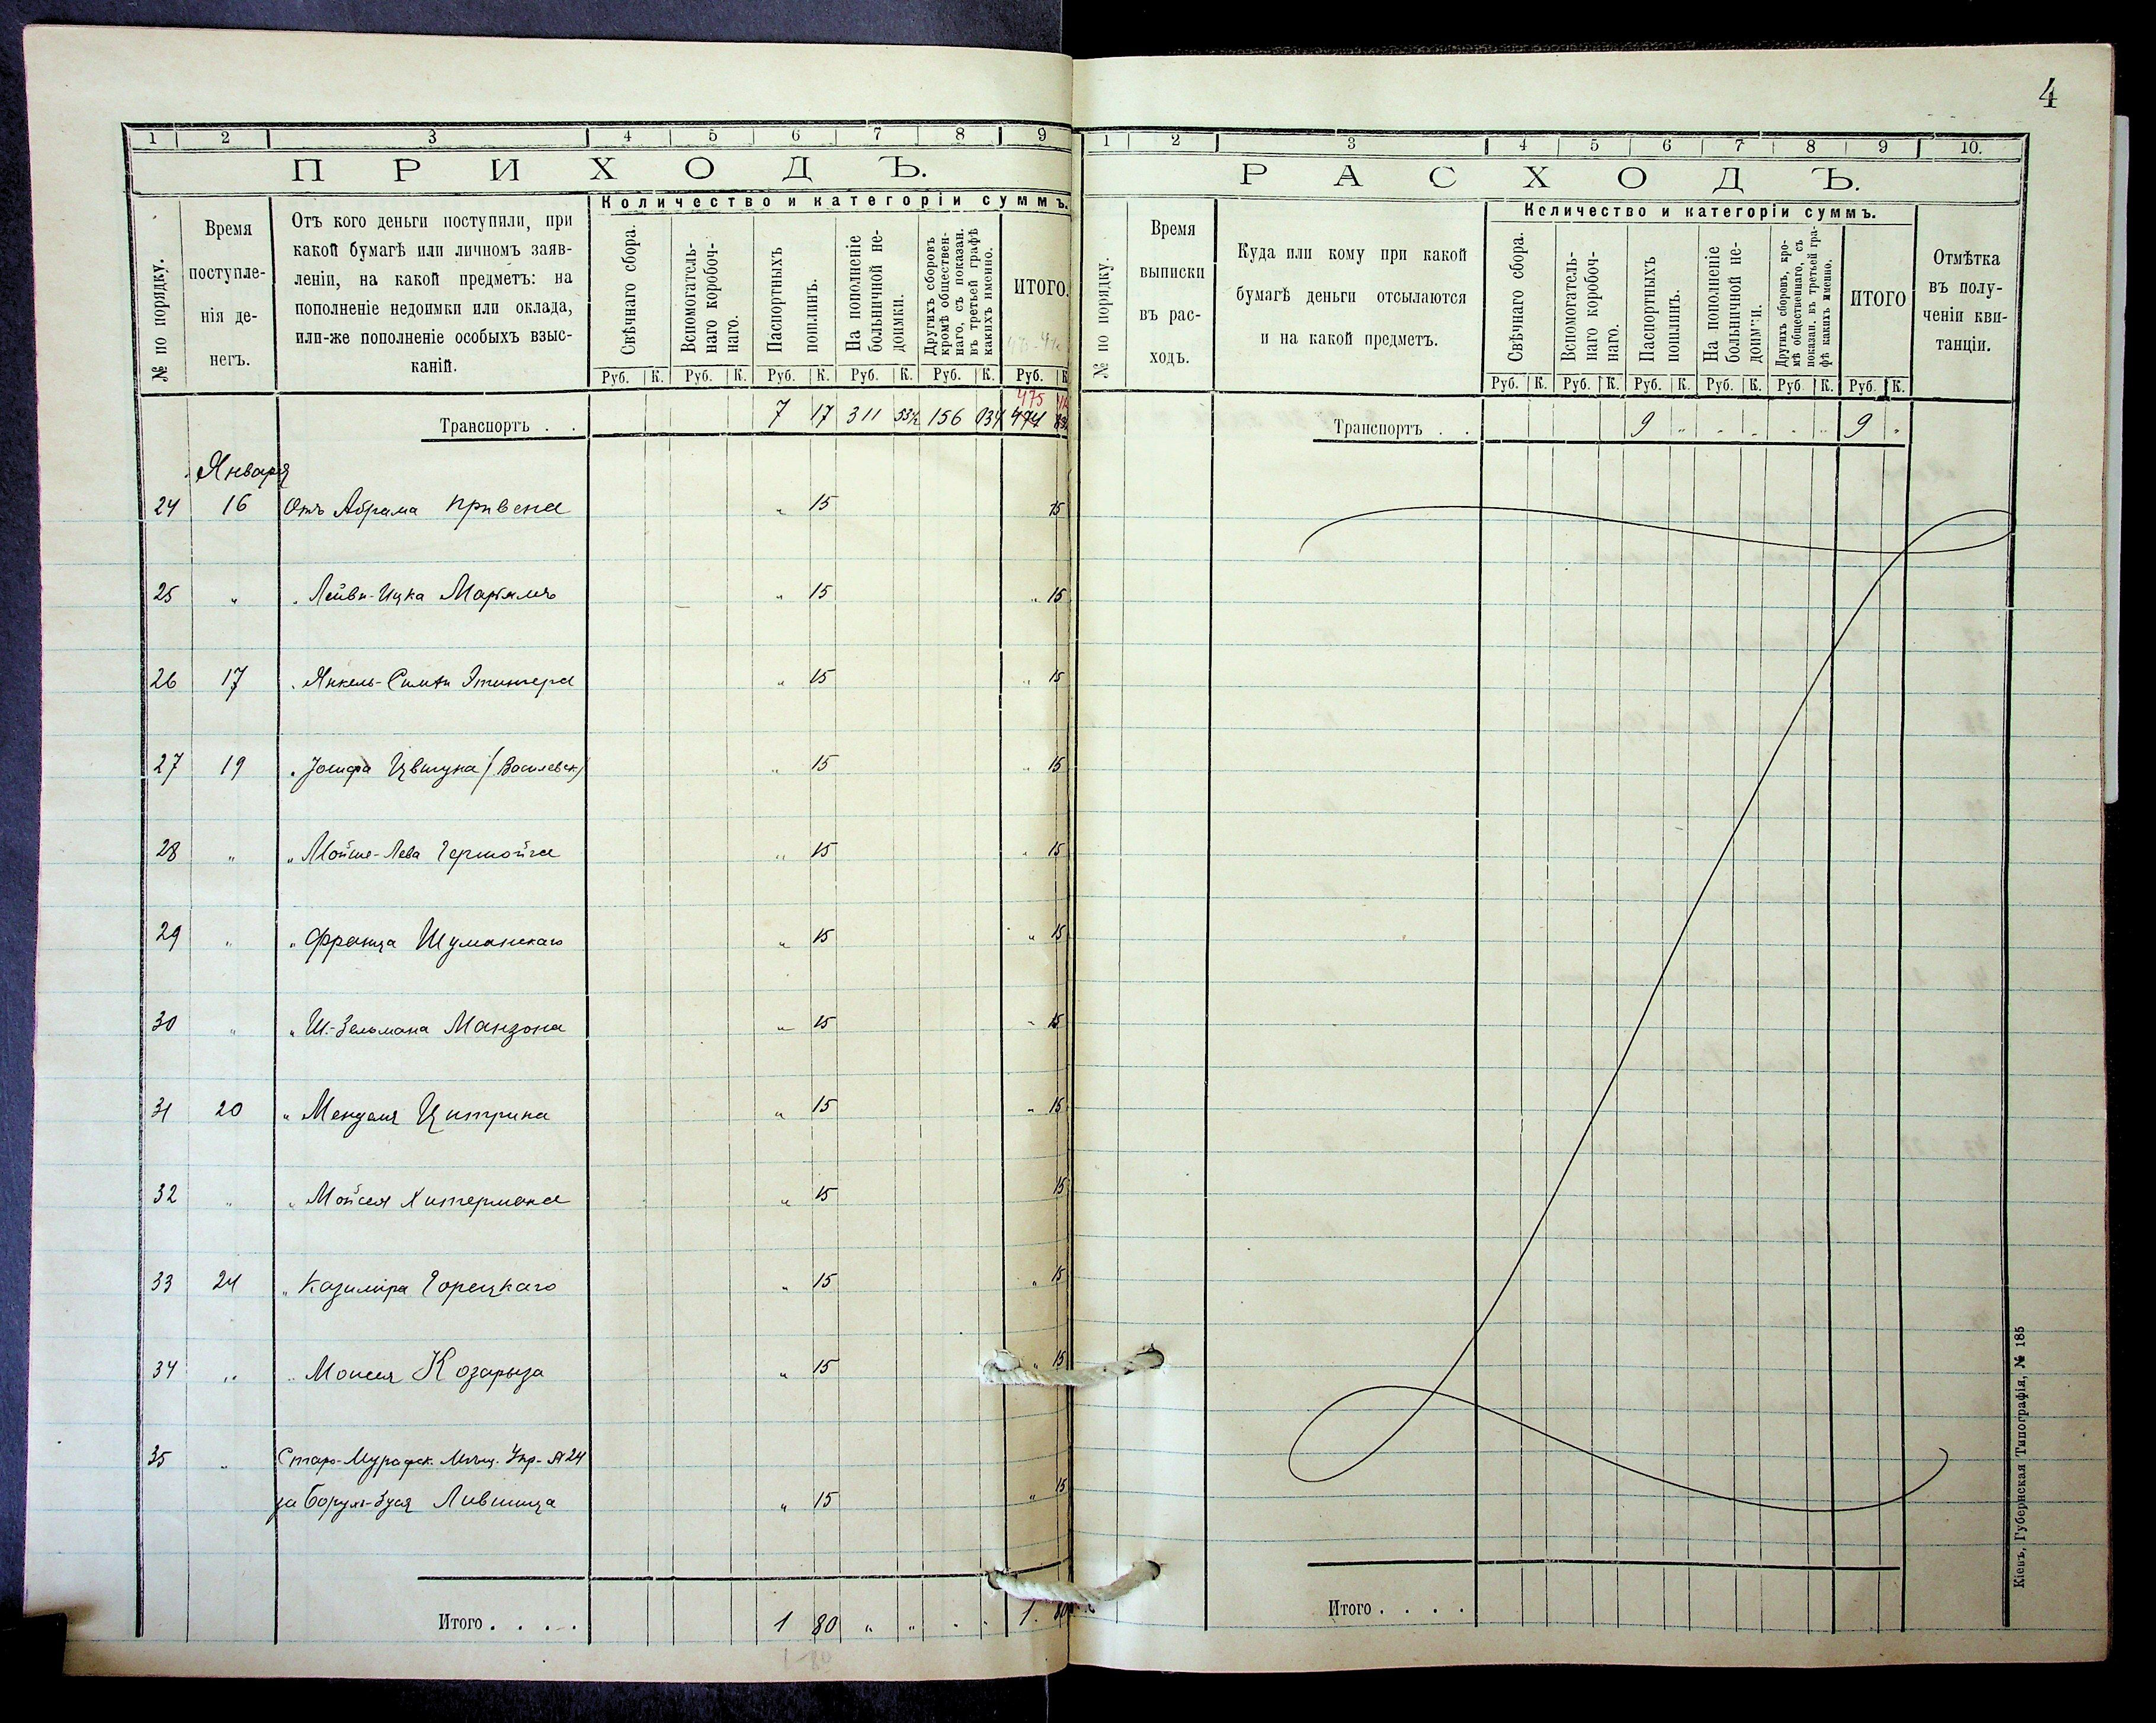 4
1 2 3 4 5 6 7 8 9
П Р И Х О Д Ъ.
№ по порядку.
Время поступле-
нія де-
негъ.
Отъ кого деньги поступили, при
какой бумагѣ или личномъ заяв-
леніи, на какой предметъ: на
пополненіе недоимки или оклада,
или-же пополненіе особыхъ взыс-
каній.
Количество и категоріи суммъ.
Свѣчнаго сбора.
Вспомогатель-
наго коробоч-
наго.
Паспортныхъ
пошлинъ.
На пополненіе
больничной не-
доимки.
Другихъ сборовъ
кромѣ обществен-
наго, съ показан.
въ третьей графѣ
какихъ именно.
ИТОГО.
Руб. К. Руб. К. Руб. К. Руб. К. Руб. К. Руб. К
475
Транспортъ . . 7 17 311 53½ 156 474
Января
24 16 Отъ Абрама Кривена „ 15 15
25 „ „ Лейви-Ицка „ 15 „ 15
26 17 „ Янкель-Симхи Этингера „ 15 „ 15
27 19 „ Іосифа Цвигуна (Василевск) „ 15 „ 15
28 „ „ Мойше-Лева „ 15 „ 15
29 „ „ Франца Шуманскаго „ 15 „ 15
30 „ „ Ш.-Зельмана Манзона „ 15 „ 15
31 20 „ Менделя Цитрина „ 15 „ 15
32 „ „ Мойсея Хитермана „ 15 15
33 24 „ Казиміра Горецкаго „ 15 „ 15
34 „ „ Моисея Козарыза „ 15 „ 15
35 „ Старо-Мурафск. Мѣщ. Упр. 24
за Борухъ-Зуся Лившица „ 15 „ 15
Итого . . . . 1 80 „ „ . . 1. 80
1-80
1 2 3 4 5 6 7 8 9 10.
Р А С Х О Д Ъ.
№ по порядку.
Время
выписки
въ рас-
ходъ.
Куда или кому при какой
бумагѣ деньги отсылаются
и на какой предметъ.
Количество и категоріи суммъ.
Свѣчнаго сбора.
Вспомогатель-
наго коробоч-
наго.
Паспортныхъ
пошлинъ.
На пополненіе
больничной не-
доимки.
Другихъ сборовъ, кро-
мѣ общественнаго, съ
показан. въ третьей гра-
фѣ какихъ именно.
ИТОГО
Отмѣтка
въ полу-
ченіи кви-
танціи.
Руб. К. Руб. К. Руб. К. Руб. К. Руб. К. Руб. К.
Транспортъ . . 9 „ „ „ „ „ 9 „
Итого . . . .
Кіевъ, Губернская Типографія, № 185